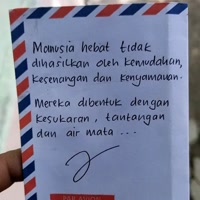 Manusia hebat tidak
dihasilkan oleh kemudahan,
kesenangan dan kenyamanan.
Mereka dibentuk dengan
kesukaran, tantangan
dan air mata ...